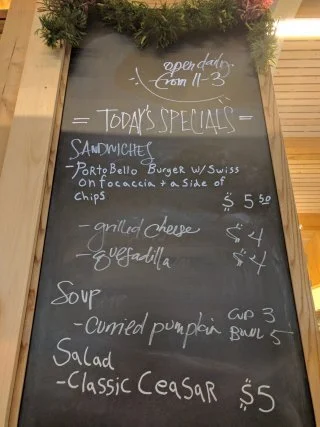 open daily
from 11-3
= TODAY'S SPECIALS =
SANDWICHES
- PORTOBELLO BURGER W/ SWISS
ON FOCACCIA + A SIDE OF
CHIPS
$ 5 50
- grilled cheese $4
- quesadilla $4
Soup
- Curried pumpkin CUP 3
BOWL 5
Salad
- CLASSIC CEASAR $5